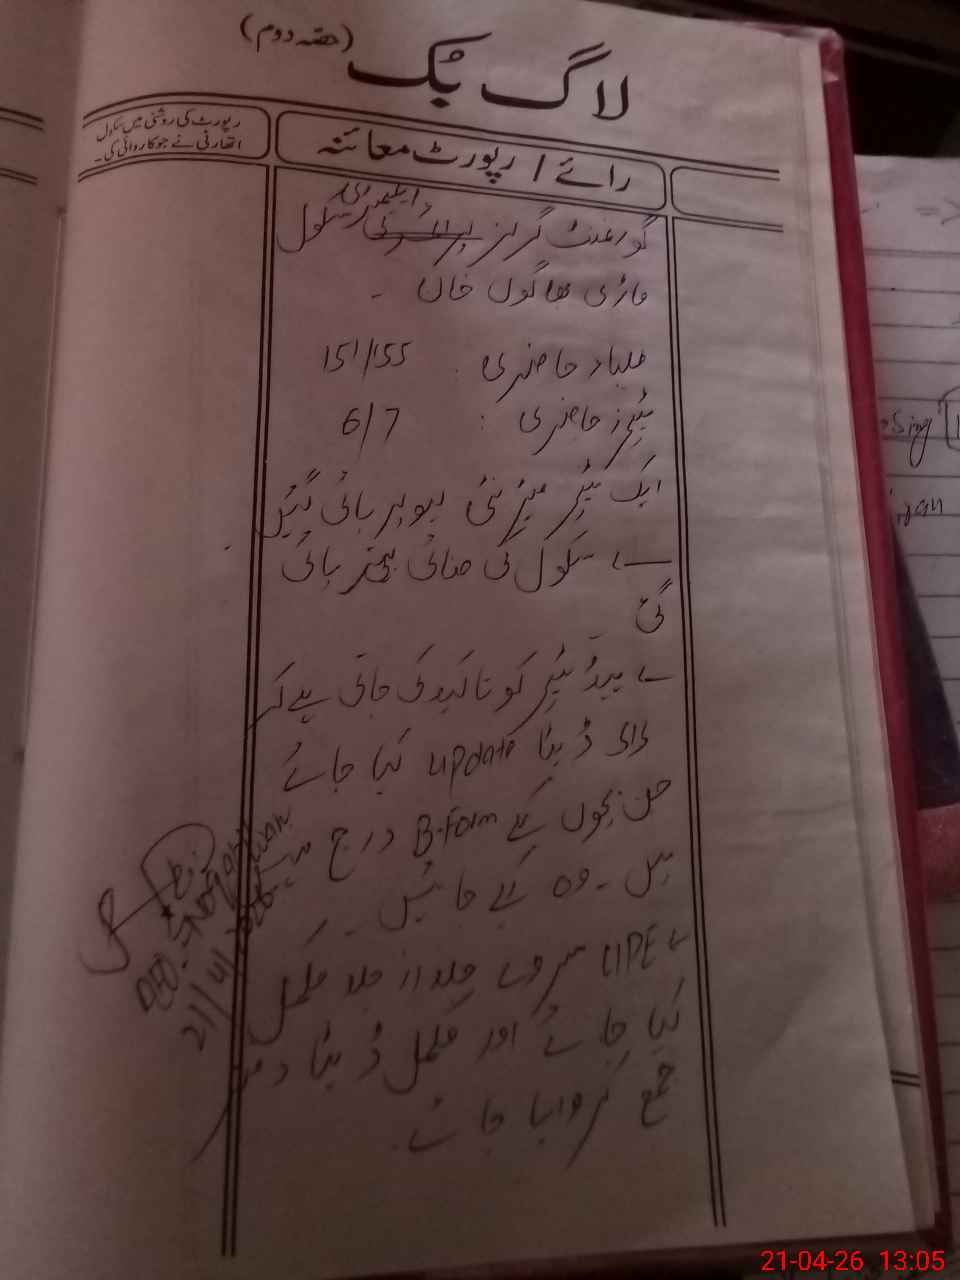 لاگ بُک (حصّہ دوم)
رائے / رپورٹ معائنہ
رپورٹ کی روشنی میں سکول
اتھارٹی نے جو کاروائی کی۔
ایلیمنٹری
گورنمنٹ گرلز پرائمری سکول
ماڑی بھاگول خان ۔
طلباء حاضری : 151/155
ٹیچرز حاضری : 6/7
ایک ٹیچر میٹرنٹی لیو پر پائی گئیں ۔
سکول کی صفائی بہتر پائی
گئی
ہیڈ ٹیچر کو تاکید کی جاتی ہے کہ
ڈیٹا update کیا جائے
جن بچوں کے B-Form درج
ہیں ۔ وہ کیے جائیں ۔
UPE سروے جلد از جلد مکمل
کیا جائے اور مکمل ڈیٹا دفتر
جمع کروایا جائے ۔
21/4/2026
=>
21-04-26 13:05